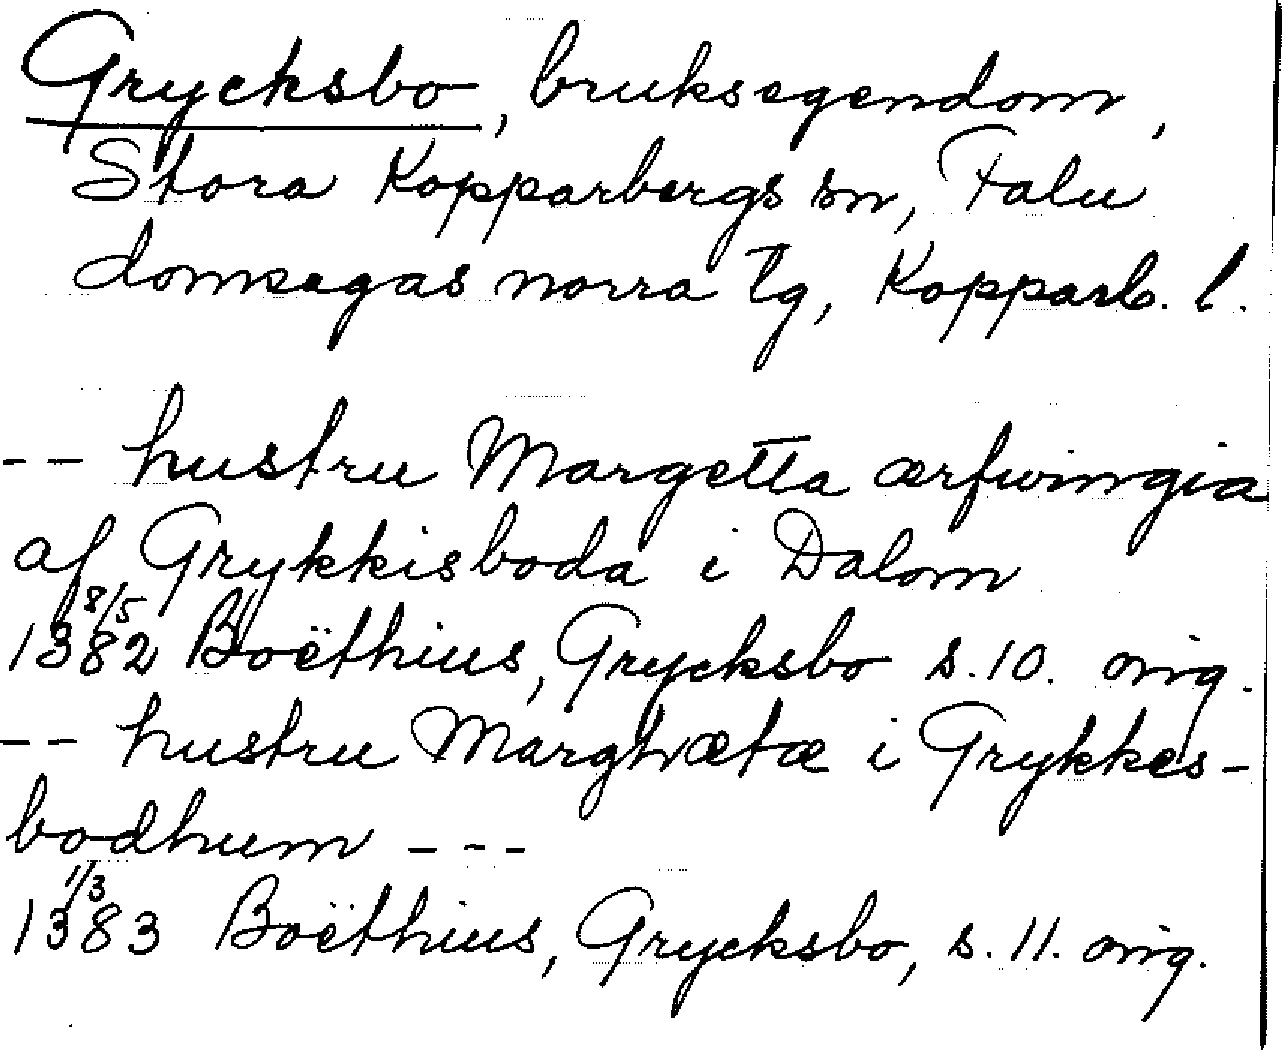 Grycksbo, bruksegendom,
Stora Kopparbergs sn, Falu
domsagas norra tg, Kopparb. l.
-- hustru Margetta ærfwingia
af Grykkisboda i Dalom
8/5
1382 Boëthius, Grycksbo s. 10. orig.
-- hustru Marghætæ i Grykkes-
bodhum ---
1/3
1383 Boëthius, Grycksbo, s. 11. orig.